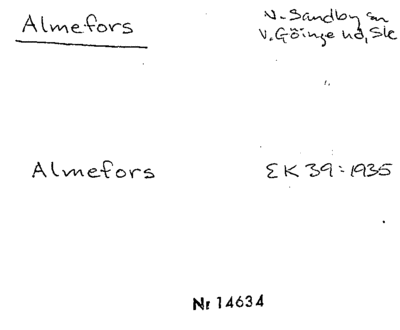 Almefors
N. Sandby sn
V. Göinge hd, Sk
Almefors
EK 39:1935
Nr 14634